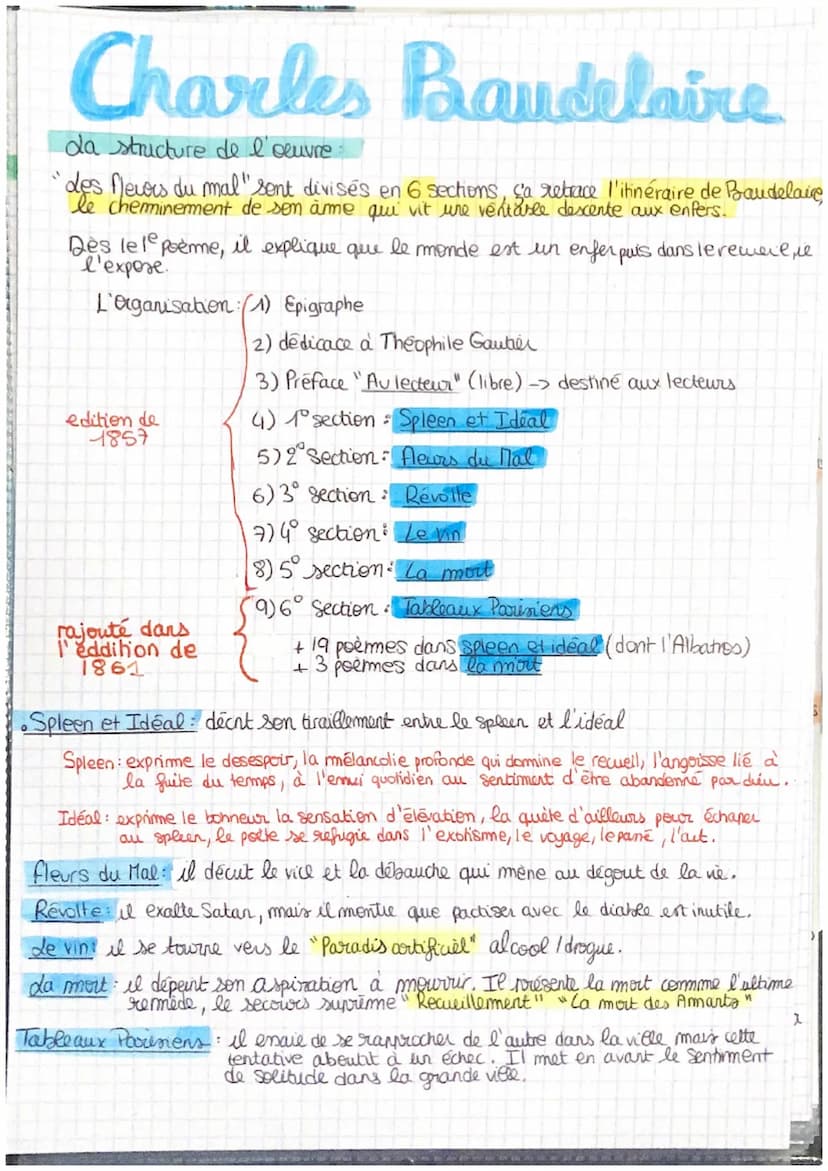 Charles Baudelaire
La structure de l'oeuvre :
"Les fleurs du mal" sont divisés en 6 sections, ça retrace l'itinéraire de Baudelaire,
le cheminement de son âme qui vit une véritable descente aux enfers.
Dès le 1e poème, il explique que le monde est un enfer puis dans le recueil, il
l'expose.
L'Organisation : 1) Epigraphe
2) dédicace à Théophile Gautier
3) Préface "Au lecteur" (libre) -> destiné aux lecteurs
edition de
1857
4) 1° section : Spleen et Idéal
5) 2° Section : Fleurs du Mal
6) 3° section : Révolte
7) 4° section : Le vin
8) 5° section : La mort
9) 6° Section : Tableaux Parisiens
rajouté dans
l'éddition de
1861
+ 19 poèmes dans spleen et idéal (dont l'Albatros)
+ 3 poèmes dans la mort
• Spleen et Idéal : décrit son tiraillement entre le spleen et l'idéal
Spleen : exprime le desespoir, la mélancolie profonde qui domine le recueil, l'angoisse lié à
la fuite du temps, à l'ennui quotidien au sentiment d'être abandonné par dieu.
Idéal : exprime le bonheur la sensation d'élévation, la quête d'ailleurs pour échaper
au spleen, le poète se refugie dans l'exotisme, le voyage, le passé, l'art.
Fleurs du Mal : il décrit le vice et la débauche qui mène au dégout de la vie.
Révolte : il exalte Satan, mais il montre que pactiser avec le diable est inutile.
Le vin : il se tourne vers le "Paradis artificièl" alcool / drogue.
La mort : il dépeint son aspiration à mourrir. Il présente la mort comme l'ultime
remède, le secours suprême "Recueillement" "La mort des Amants"
Tableaux Parisiens : il essaie de se rapprocher de l'autre dans la ville mais cette
tentative aboutit à un échec. Il met en avant le sentiment
de solitude dans la grande ville.